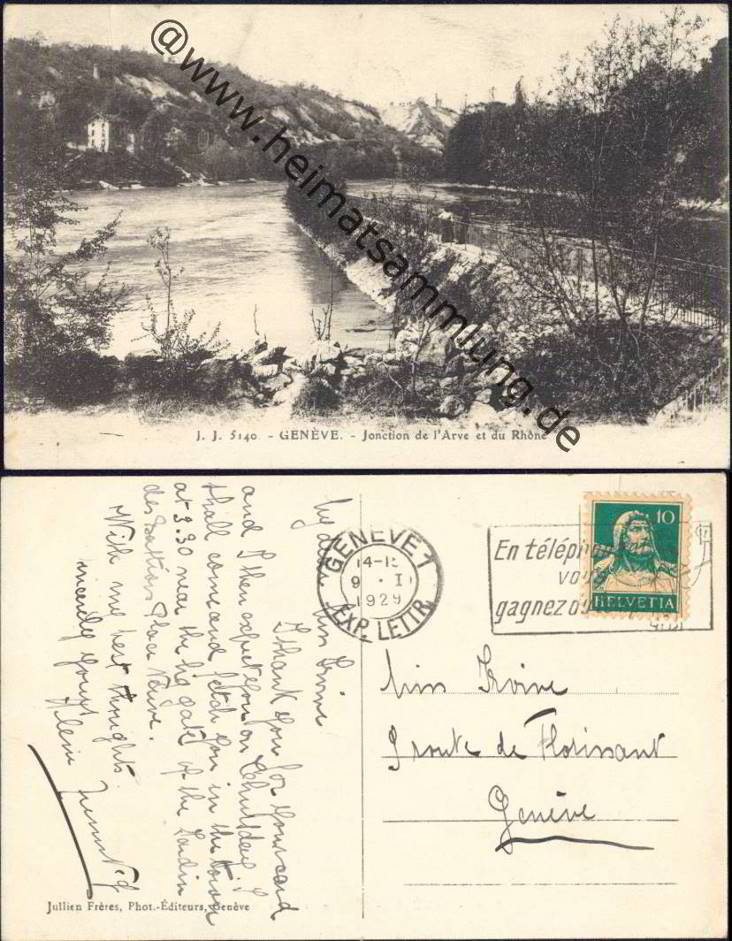 @www.heimatsammlung.de
J. J. 5140 - GENÈVE. - Jonction de l'Arve et du Rhône
GENÈVE 1
14-15
9 . I
1929
EXP. LETTR.
En téléphon
vous
gagnez
10
HELVETIA
My dear Miss
I thank you for your card
and I then expect you on Thursday, I
shall come and fetch you in the
at 3.30 near the big gate of the Jardin
des Bastions Place Neuve.
With my best thoughts
yours
Miss
route de Florissant
Genève
Jullien Frères, Phot.-Éditeurs, Genève